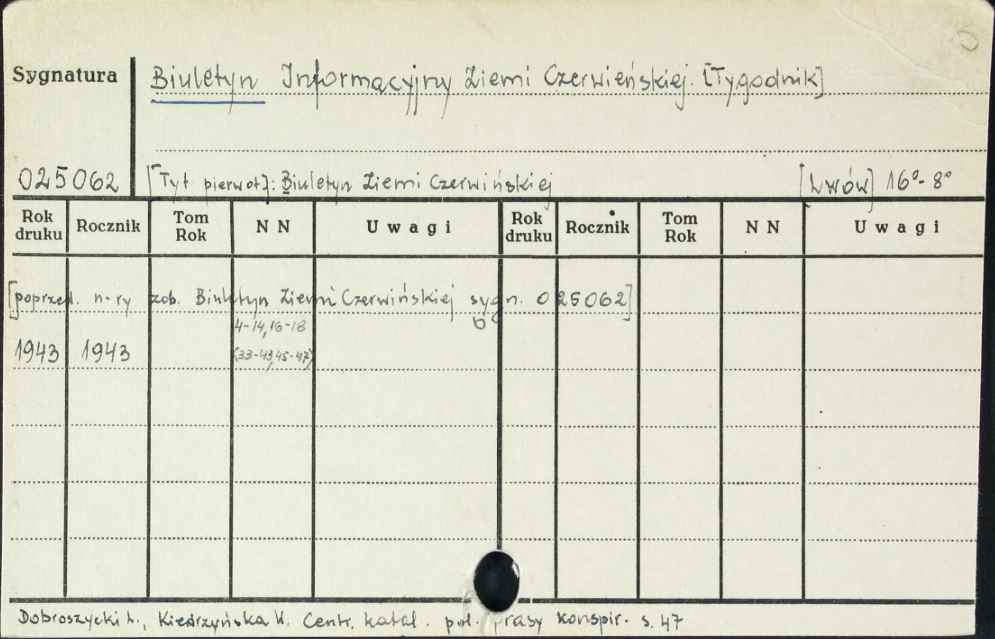 Sygnatura Biuletyn Informacyjny Ziemi Czerwieńskiej. [Tygodnik]
025062 [Tyt pierwot]: Biuletyn Ziemi Czerwińskiej [Lwów] 16°-8°
Rok druku Rocznik Tom Rok NN Uwagi Rok druku Rocznik Tom Rok NN Uwagi
[poprzed. n-ry zob. Biuletyn Ziemi Czerwińskiej sygn. 025062]
4-14, 16-18
1943 1943 (33-43, 45-47)
Dobroszycki L., Kiedrzyńska W. Centr. katal. pol. prasy konspir. s. 47